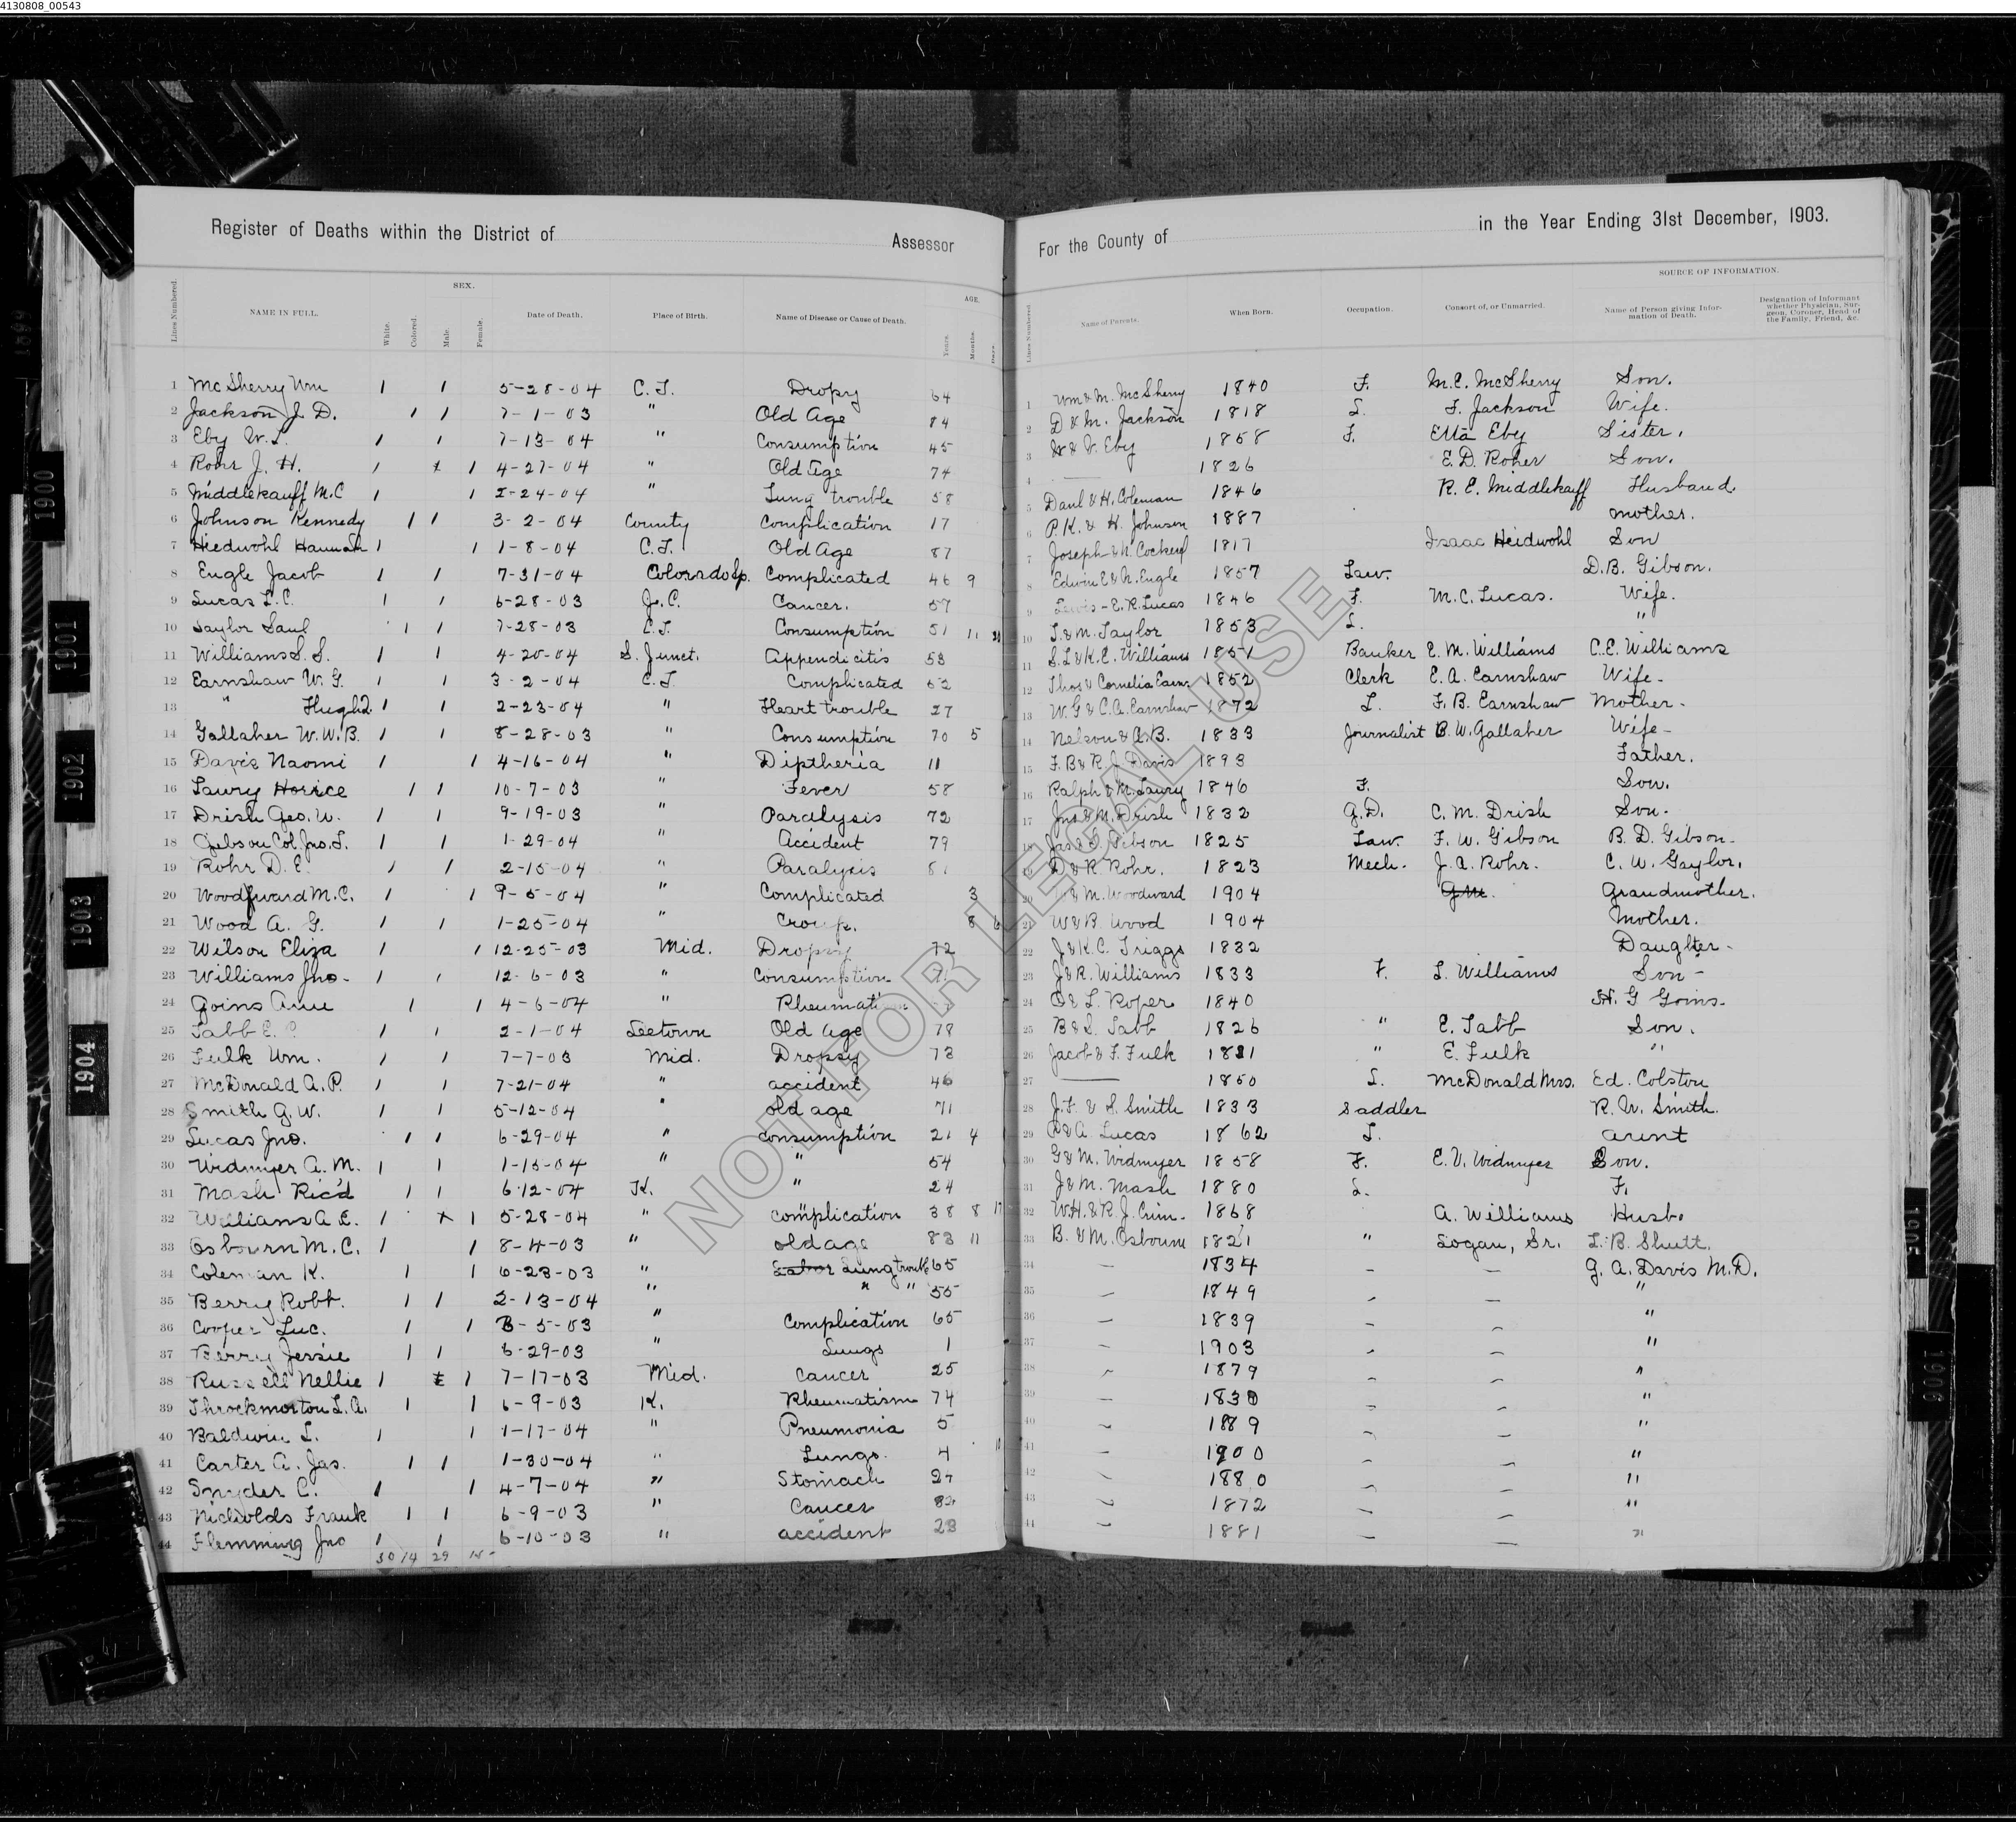 4130808_00543
Register of Deaths within the District of Assessor For the County of in the Year Ending 31st December, 1903.
Lines Numbered. NAME IN FULL. White. Colored. SEX. Male. Female. Date of Death. Place of Birth. Name of Disease or Cause of Death. AGE. Years. Months. Days. Lines Numbered Name of Parents. When Born. Occupation. Consort of, or Unmarried. SOURCE OF INFORMATION. Name of Person giving Information of Death. Designation of Informant whether Physician, Surgeon, Coroner, Head of the Family, Friend, &c.
1 McSherry Wm 1 1 5-28-04 C.T. Dropy 64 1 Wm & M. McSherry 1840 F. M.E. McSherry Son.
2 Jackson J. D. 1 1 7-1-03 " Old Age 84 2 D & M. Jackson 1818 L. F. Jackson Wife.
3 Eby W.L. 1 1 7-13-04 " Consumption 45 3 Eby 1858 F. Etta Eby Sister.
4 Rohr J. H. 1 1 4-27-04 " Old age 74 4 1826 E.D. Roher Son.
5 Middlekauff M.C 1 1 2-24-04 " Lung trouble 58 5 Danl & H. Coleman 1846 R. E. Middlekauff Husband
6 Johnson Kennedy 1 1 3-2-04 County Complication 17 6 P.K. & H. Johnson 1887 mother.
7 Hiedwohl Hannah 1 1 1-8-04 C.T. Old Age 87 7 Joseph & N. 1817 Isaac Heidwohl Son
8 Engle Jacob 1 1 7-31-04 Colorado Sp. Complicated 46 9 8 Edwin E & N. Engle 1857 Law. D.B. Gibson.
9 Lucas L.C. 1 1 6-28-03 Je. C. Cancer. 57 9 Lewis - E.R. Lucas 1846 F. M.C. Lucas. Wife.
10 Taylor Saul 1 1 7-28-03 C.T. Consumption 51 11 10 T. & M. Taylor 1853 L. "
11 Williams S. S. 1 1 4-20-04 S. Junct. Appendicitis 53 11 S.L & K.E. Williams 1851 Banker E. M. Williams C.E. Williams
12 Earnshaw W. G. 1 1 3-2-04 C.T. Complicated 52 12 Thos & Cornelia Earn. 1852 Clerk E. A. Earnshaw Wife-
13 " Hugh 1 1 2-23-04 " Heart trouble 27 13 W.G & C.A. Earnshaw 1872 L. F.B. Earnshaw Mother-
14 Gallaher W.W.B. 1 1 8-28-03 " Consumption 70 5 14 Nelson & A.B. 1833 Journalist B.W. Gallaher Wife-
15 Davis Naomi 1 1 4-16-04 " Diptheria 11 15 F.B & R.J. Davis 1893 Father.
16 Lawry Horice 1 1 10-7-03 " Fever 58 16 Ralph & M. Lawry 1846 F. Son.
17 Drish Geo. W. 1 1 9-19-03 " Paralysis 72 17 Jno & M. Drish 1832 G.D. C.M. Drish Son-
18 Gibson Col. Jno. T. 1 1 1-29-04 " Accident 79 18 Gibson 1825 Law. F. W. Gibson B.D. Gibson-
19 Rohr D. E. 1 1 2-15-04 " Paralysis 81 19 D & R. Rohr. 1823 Mech. J.A. Rohr. C. W. Gaylor.
20 Woodward M.C. 1 1 9-5-04 " Complicated 3 20 & M. Woodward 1904 Grandmother.
21 Wood A. G. 1 1 1-25-04 " Croup. 8 6 21 W & B. Wood 1904 Mother.
22 Wilson Eliza 1 1 12-25-03 Mid. Dropsy 72 22 J & K.C. Triggs 1832 Daughter-
23 Williams Jno- 1 1 12-6-03 " Consumption 23 J & R. Williams 1833 F. L. Williams Son-
24 Goins 1 1 4-6-04 " Rheumati 24 L. Roper 1840 H. G Goins-
25 Tabb E. 1 1 2-1-04 Leetown Old Age 78 25 B & S. Tabb 1826 " E. Tabb Son.
26 Fulk Wm. 1 1 7-7-03 Mid. Dropsy 73 26 Jacob & F. Fulk 1831 " E. Fulk "
27 McDonald A.P. 1 1 7-21-04 " accident 46 27 1850 L. McDonald Mrs. Ed. Colston
28 Smith G. W. 1 1 5-12-04 " old age 71 28 J.F. & S. Smith 1833 Saddler R. W. Smith.
29 Lucas Jno. 1 1 6-29-04 " Consumption 21 4 29 Lucas 1862 L. aunt
30 Widmyer A. M. 1 1 1-15-04 " " 54 30 G & M. Widmyer 1858 F. E.V. Widmyer Son.
31 Mash Ric'd 1 1 6-12-04 K. " 24 31 J & M. Mash 1880 L. F.
32 Williams A. E. 1 x 1 5-28-04 " Complication 38 8 17 32 W.H. & R. J. Crim- 1868 A. Williams Husb.
33 Osbourn M.C. 1 1 8-4-03 " old age 83 11 33 B. & M. Osbourne 1821 " Logan, Sr. L.B. Shutt.
34 Coleman K. 1 1 6-23-03 " Lung trouble 65 34 — 1834 — — G. A. Davis M.D.
35 Berry Robt. 1 1 2-13-04 " " 55 35 — 1849 — — "
36 Cooper Luc. 1 1 3-5-03 " Complication 65 36 — 1839 — — "
37 Berry Jessie 1 1 6-29-03 " Lungs 1 37 — 1903 — — "
38 Russell Nellie 1 1 7-17-03 Mid. Cancer 25 38 — 1879 — — "
39 Throckmorton L.A. 1 1 6-9-03 K. Rheumatism 74 39 — 1830 — — "
40 Baldwin L. 1 1 1-17-04 " Pneumonia 5 40 — 1889 — — "
41 Carter A. Jas. 1 1 1-30-04 " Lungs. 4 41 — 1900 — — "
42 Snyder C. 1 1 4-7-04 " Stomach 42 — 1880 — — "
43 Nicholds Frank 1 1 6-9-03 " Cancer 32 43 — 1872 — — "
44 Flemming Jno 1 1 6-10-03 " accident 23 44 — 1881 — — "
30 14 29 15-
1900
1901
1902
1903
1904
1905
1906
NOT FOR LEGAL USE